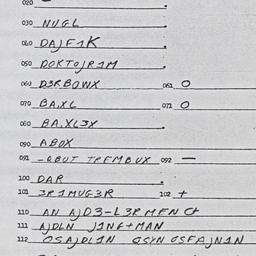 020 –
030 NUGL
040 DAJF1K
050 DOKTOJR1M
060 D3RBOWX 061 O
070 BA.XL 071 O
080 BA.XL3X
090 ABOX
091 -QBUT TPEMBUX 092 —
100 DAR
101 3R1MUG3R 102 +
110 AN AJD3-L3RMFN
111 AJDLN J1NG+MAN
112 OSAJDL1N OSYN OSFAJN1N